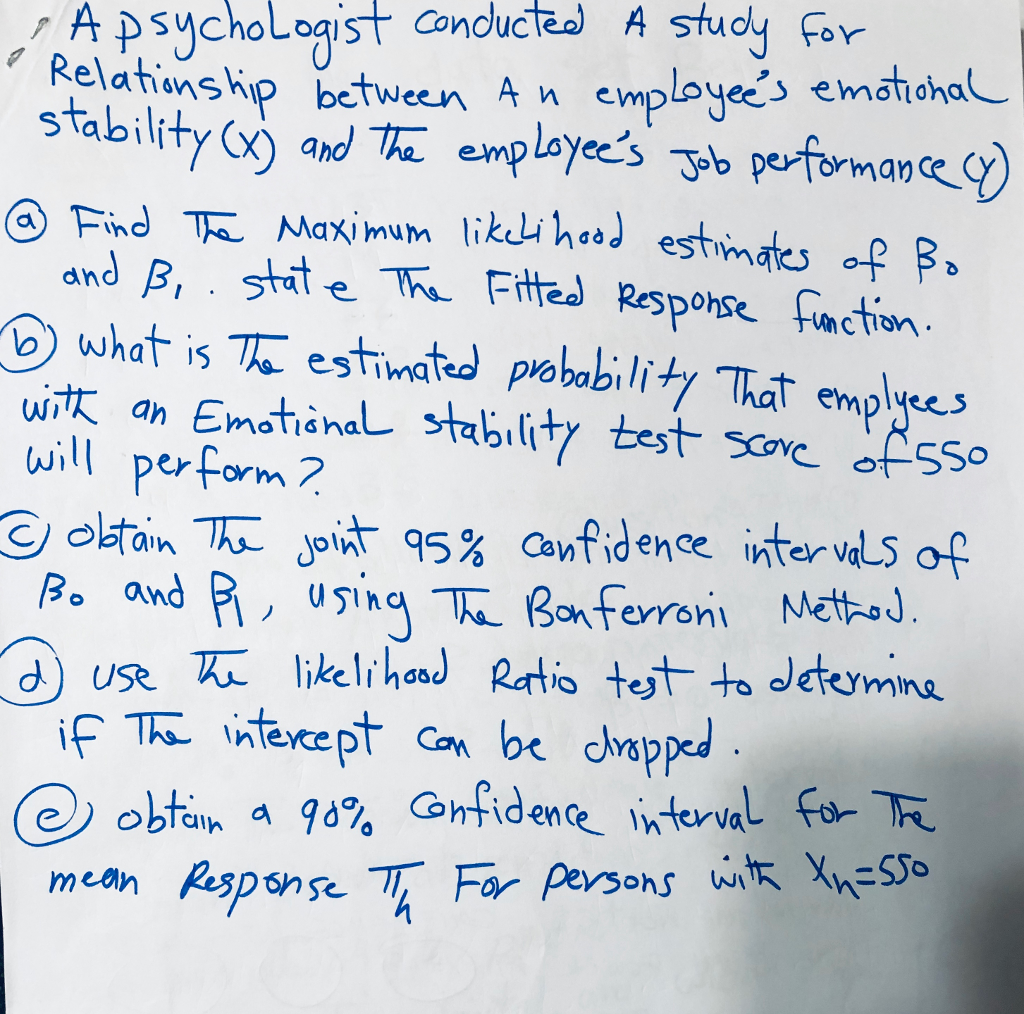 A psychologist conducted A study For
Relationship between An employee's emotional
stability (X) and The employee's Job performance (Y)
(a) Find The Maximum likelihood estimates of B₀
and B₁. state The Fitted Response function.
(b) what is The estimated probability That emplyees
with an Emotional stability test score of 550
will perform?
(c) obtain The joint 95% Confidence intervals of
B₀ and β₁, using The Bonferroni Method.
(d) use The likelihood Ratio test to determine
if The intercept can be dropped.
(e) obtain a 90% Confidence interval for The
mean Response π_h For persons with X_h=550